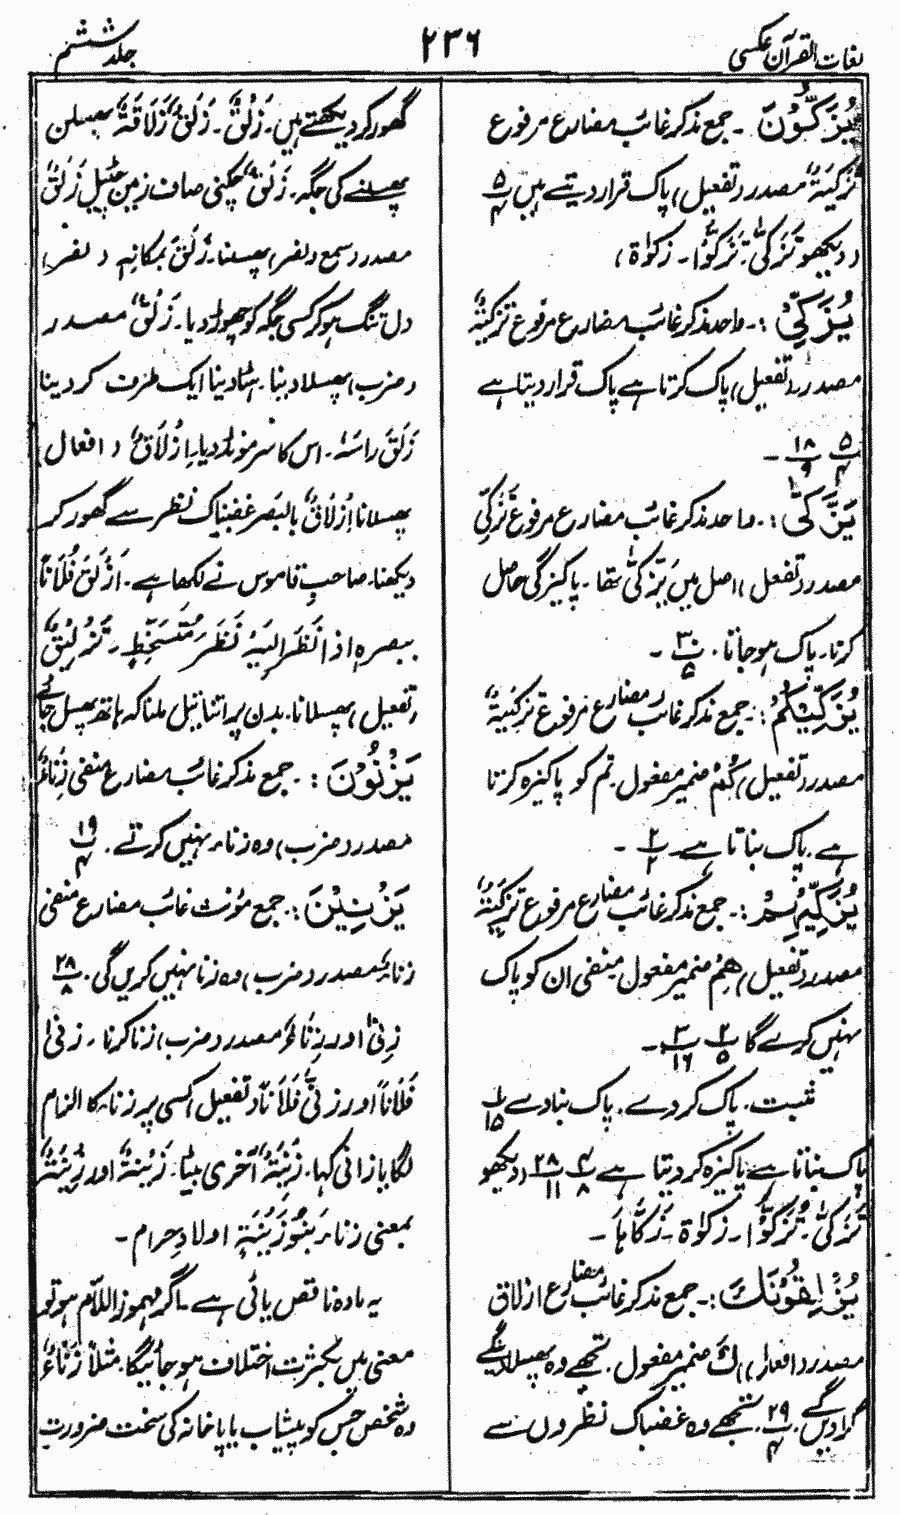 لغات القرآن عکسی
۲۳۶
جلد ششم
یُزَکُّوْنَ ۔ جمع مذکر غائب مضارع مرفوع
تَزْکِیَۃٌ مصدر (تفعیل) پاک قرار دیتے ہیں ۵/۴
(دیکھو تَزَکّٰی۔ تُزَکُّوْا۔ زکوٰۃ)
یُزَکِّیْ :۔ واحد مذکر غائب مضارع مرفوع تَزْکِیَۃٌ
مصدر (تفعیل) پاک کرتا ہے پاک قرار دیتا ہے
۵/۴ ۱۸/۹ ۔
یَزَّکّٰی :۔ واحد مذکر غائب مضارع مرفوع تَزَکِّیْ
مصدر (تفعل) اصل میں یَتَزَکّٰی تھا ۔ پاکیزگی حاصل
کرنا۔ پاک ہو جانا ۔ ۳۰/۵ ۔
یُزَکِّیْکُمْ :۔ جمع مذکر غائب مضارع مرفوع تَزْکِیَۃٌ
مصدر (تفعیل) کُمْ ضمیر مفعول۔ تم کو پاکیزہ کرتا
ہے۔ پاک بناتا ہے۔ ۲/۲ ۔
یُزَکِّیْہِمْ :۔ جمع مذکر غائب مضارع مرفوع تَزْکِیَۃٌ
مصدر (تفعیل) ھِمْ ضمیر مفعول منفی ان کو پاک
نہیں کرے گا ۲/۵ ۳/۱۶ ۔
مثبت ۔ پاک کر دے۔ پاک بنا دے ۱/۱۵
پاک بناتا ہے۔ پاکیزہ کر دیتا ہے ۴/۸ ۲۸/۱۱ (دیکھو
تَزَکّٰی۔ تُزَکُّوْا ۔ زکوٰۃ ۔ زَکّٰاہَا ۔
یُزْلِقُوْنَکَ :۔ جمع مذکر غائب مضارع ازلاق
مصدر (افعال) کَ ضمیر مفعول۔ تجھے وہ پھسلا دینگے
گرا دیں گے۔ ۲۹/۴ ۔ تجھے وہ غضبناک نظروں سے
گھور کر دیکھتے ہیں۔ زَلْقٌ۔ زَلَقٌ زَلَاقَۃٌ پھسلن
پھسلنے کی جگہ۔ زَلَقٌ چکنی صاف زمین چٹیل زَلَقٌ
مصدر (سمع و نصر) پھسلنا۔ زَلَقَ بمکانہٖ (نصر)
دل تنگ ہو کر کسی جگہ کو چھوڑ دیا۔ زَلْقٌ مصدر
(ضرب) پھسلا دینا۔ ہٹا دینا ایک طرف کر دینا
زَلَقَ رَاسَہٗ۔ اس کا سر مونڈ دیا۔ اِزْلَاقٌ (افعال)
پھسلانا اِزْلَاقٌ بالبَصَر غضبناک نظر سے گھور کر
دیکھنا۔ صاحبِ قاموس نے لکھا ہے۔ اَزْلَقَ فُلَانًا
ببصرہٖ اذا نَظَرَ اِلَیْہِ نَظَرَ مُتَسَخِّطٍ۔ تَزْلِیْقٌ
(تفعیل) پھسلانا۔ بدن پر اتنا تیل ملنا کہ ہاتھ پھسل جائے
یَزْنُوْنَ :۔ جمع مذکر غائب مضارع منفی زِنَاءٌ
مصدر (ضرب) وہ زناء نہیں کرتے۔ ۱۹/۴
یَزْنِیْنَ :۔ جمع مؤنث غائب مضارع منفی
زناءٌ مصدر (ضرب) وہ زنا نہیں کریں گی۔ ۲۸/۸
زِنیً اور زِنَاءٌ مصدر (ضرب) زنا کرنا ۔ زنّی
فُلَانًا اور زنّٰی فُلَانًا (تفعیل) کسی پر زناء کا الزام
لگایا زانی کہا۔ زِنْیَۃٌ آخری بیٹا۔ زَنْیَۃٌ اور زِنْیَۃٌ
بمعنی زناء بَنُوْ زِنْیَۃٍ اولادِ حرام ۔
یہ مادہ ناقص یائی ہے ۔ اگر مہموز اللّام ہو تو
معنی میں بکثرت اختلاف ہو جائیگا۔ مثلاً زَنَّاءٌ
وہ شخص جس کو پیشاب یا پاخانہ کی سخت ضرورت